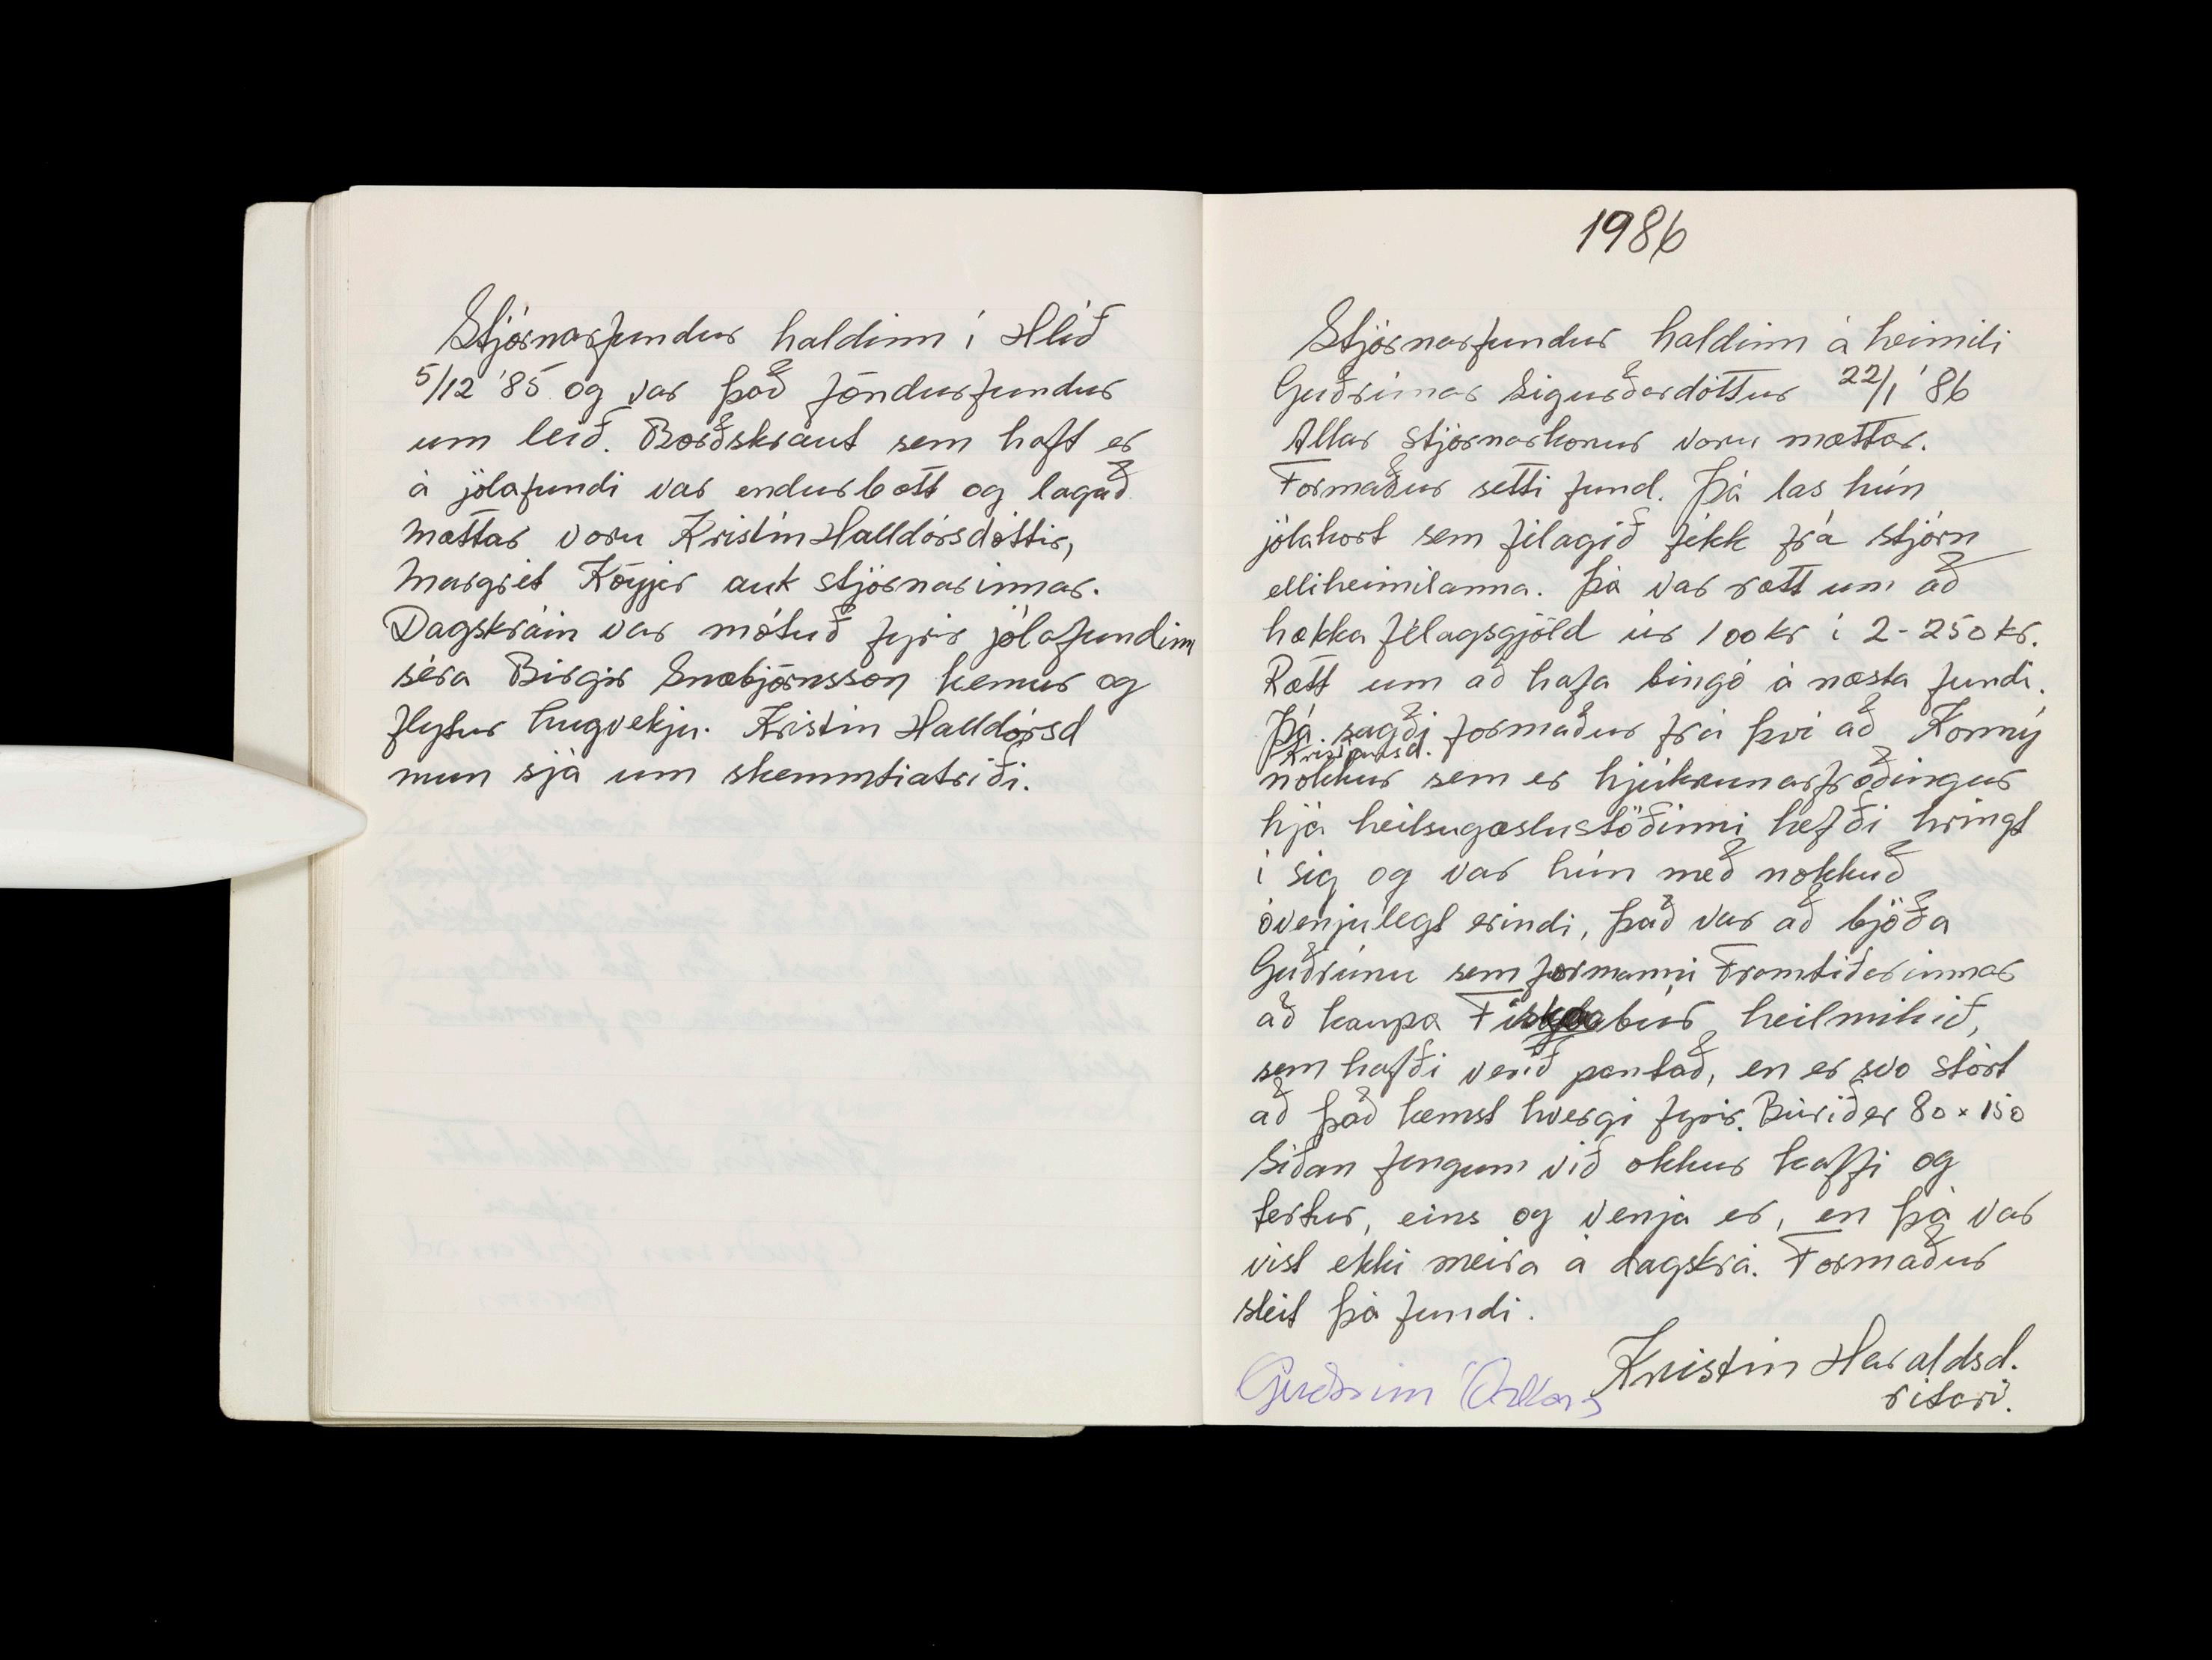 Stjórnarfundur haldinn í Hlíð
5/12 '85 og var það föndurfundur
um leið. Borðskraut sem haft er
á jólafundi var endurbætt og lagað
Mættar voru Kristín Halldórsdóttir,
Margrét auk stjórnarinnar.
Dagskráin var mótuð fyrir jólafundinn
séra Birgir Snæbjörnsson kemur og
flytur hugvekju. Kristín Halldórsd
mun sjá um skemmtiatriði.
1986
Stjórnarfundur haldinn á heimili
Guðrúnar Sigurðardóttur 22/1 '86
Allar stjórnarkonur voru mættar.
Formaður setti fund. Þá las hún
jólakort sem félagið fékk frá stjórn
elliheimilanna. Þá var rætt um að
hækka félagsgjöld úr 100 kr í 2-250 kr.
Rætt um að hafa bingó á næsta fundi.
Þá sagði formaður frá því að Konný
Kristjánsd.
nokkur sem er hjúkrunarfræðingur
hjá heilsugæslustöðinni hefði hringt
í sig og var hún með nokkuð
óvenjulegt erindi, það var að bjóða
Guðrúnu sem formanni Framtíðarinnar
að kaupa Fiskabúr heilmikið,
sem hafði verið pantað, en er svo stórt
að það kemst hvergi fyrir. Búrið er 80 x 150
Síðan fengum við okkur kaffi og
tertur, eins og venja er, en þá var
víst ekki meira á dagskrá. Formaður
sleit þá fundi.
Kristín Haraldsd.
ritari.
Guðrún